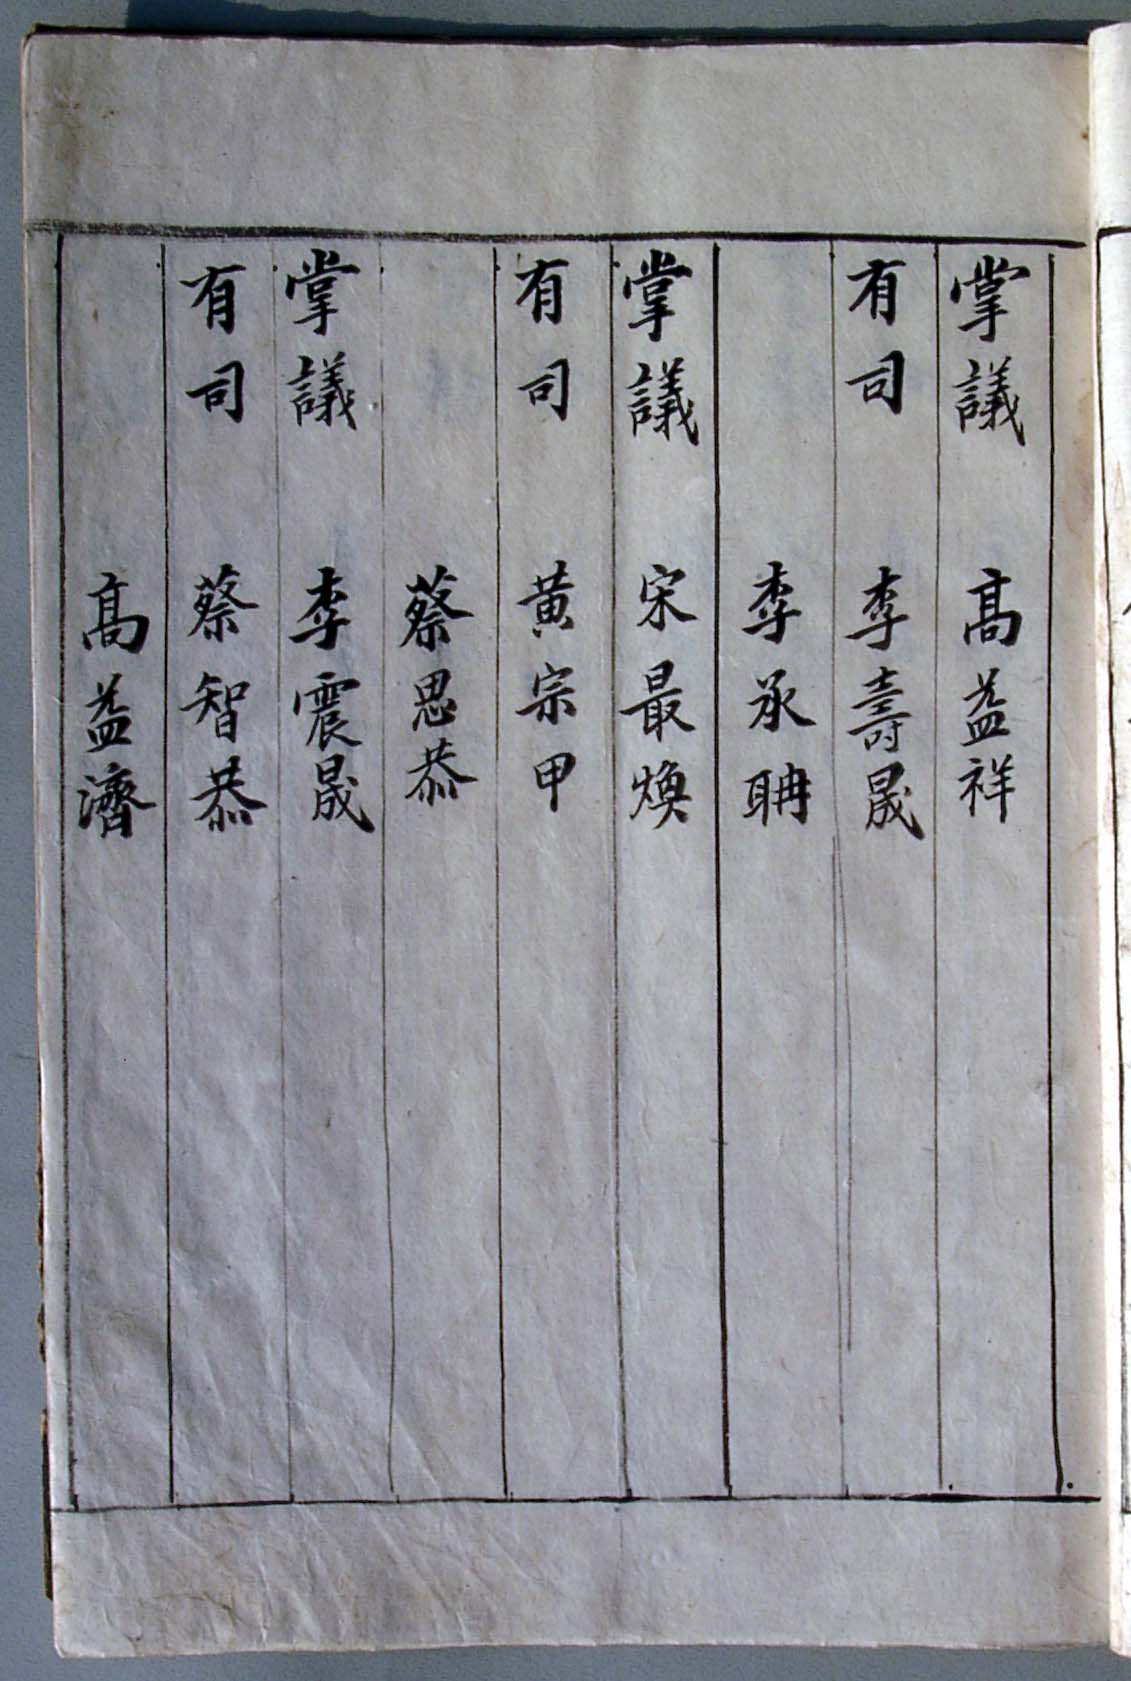 掌議 高益祥
有司 李壽晟
李承聃
掌議 宋最煥
有司 黃宗甲
蔡思恭
掌議 李震晟
有司 蔡智恭
高益濟